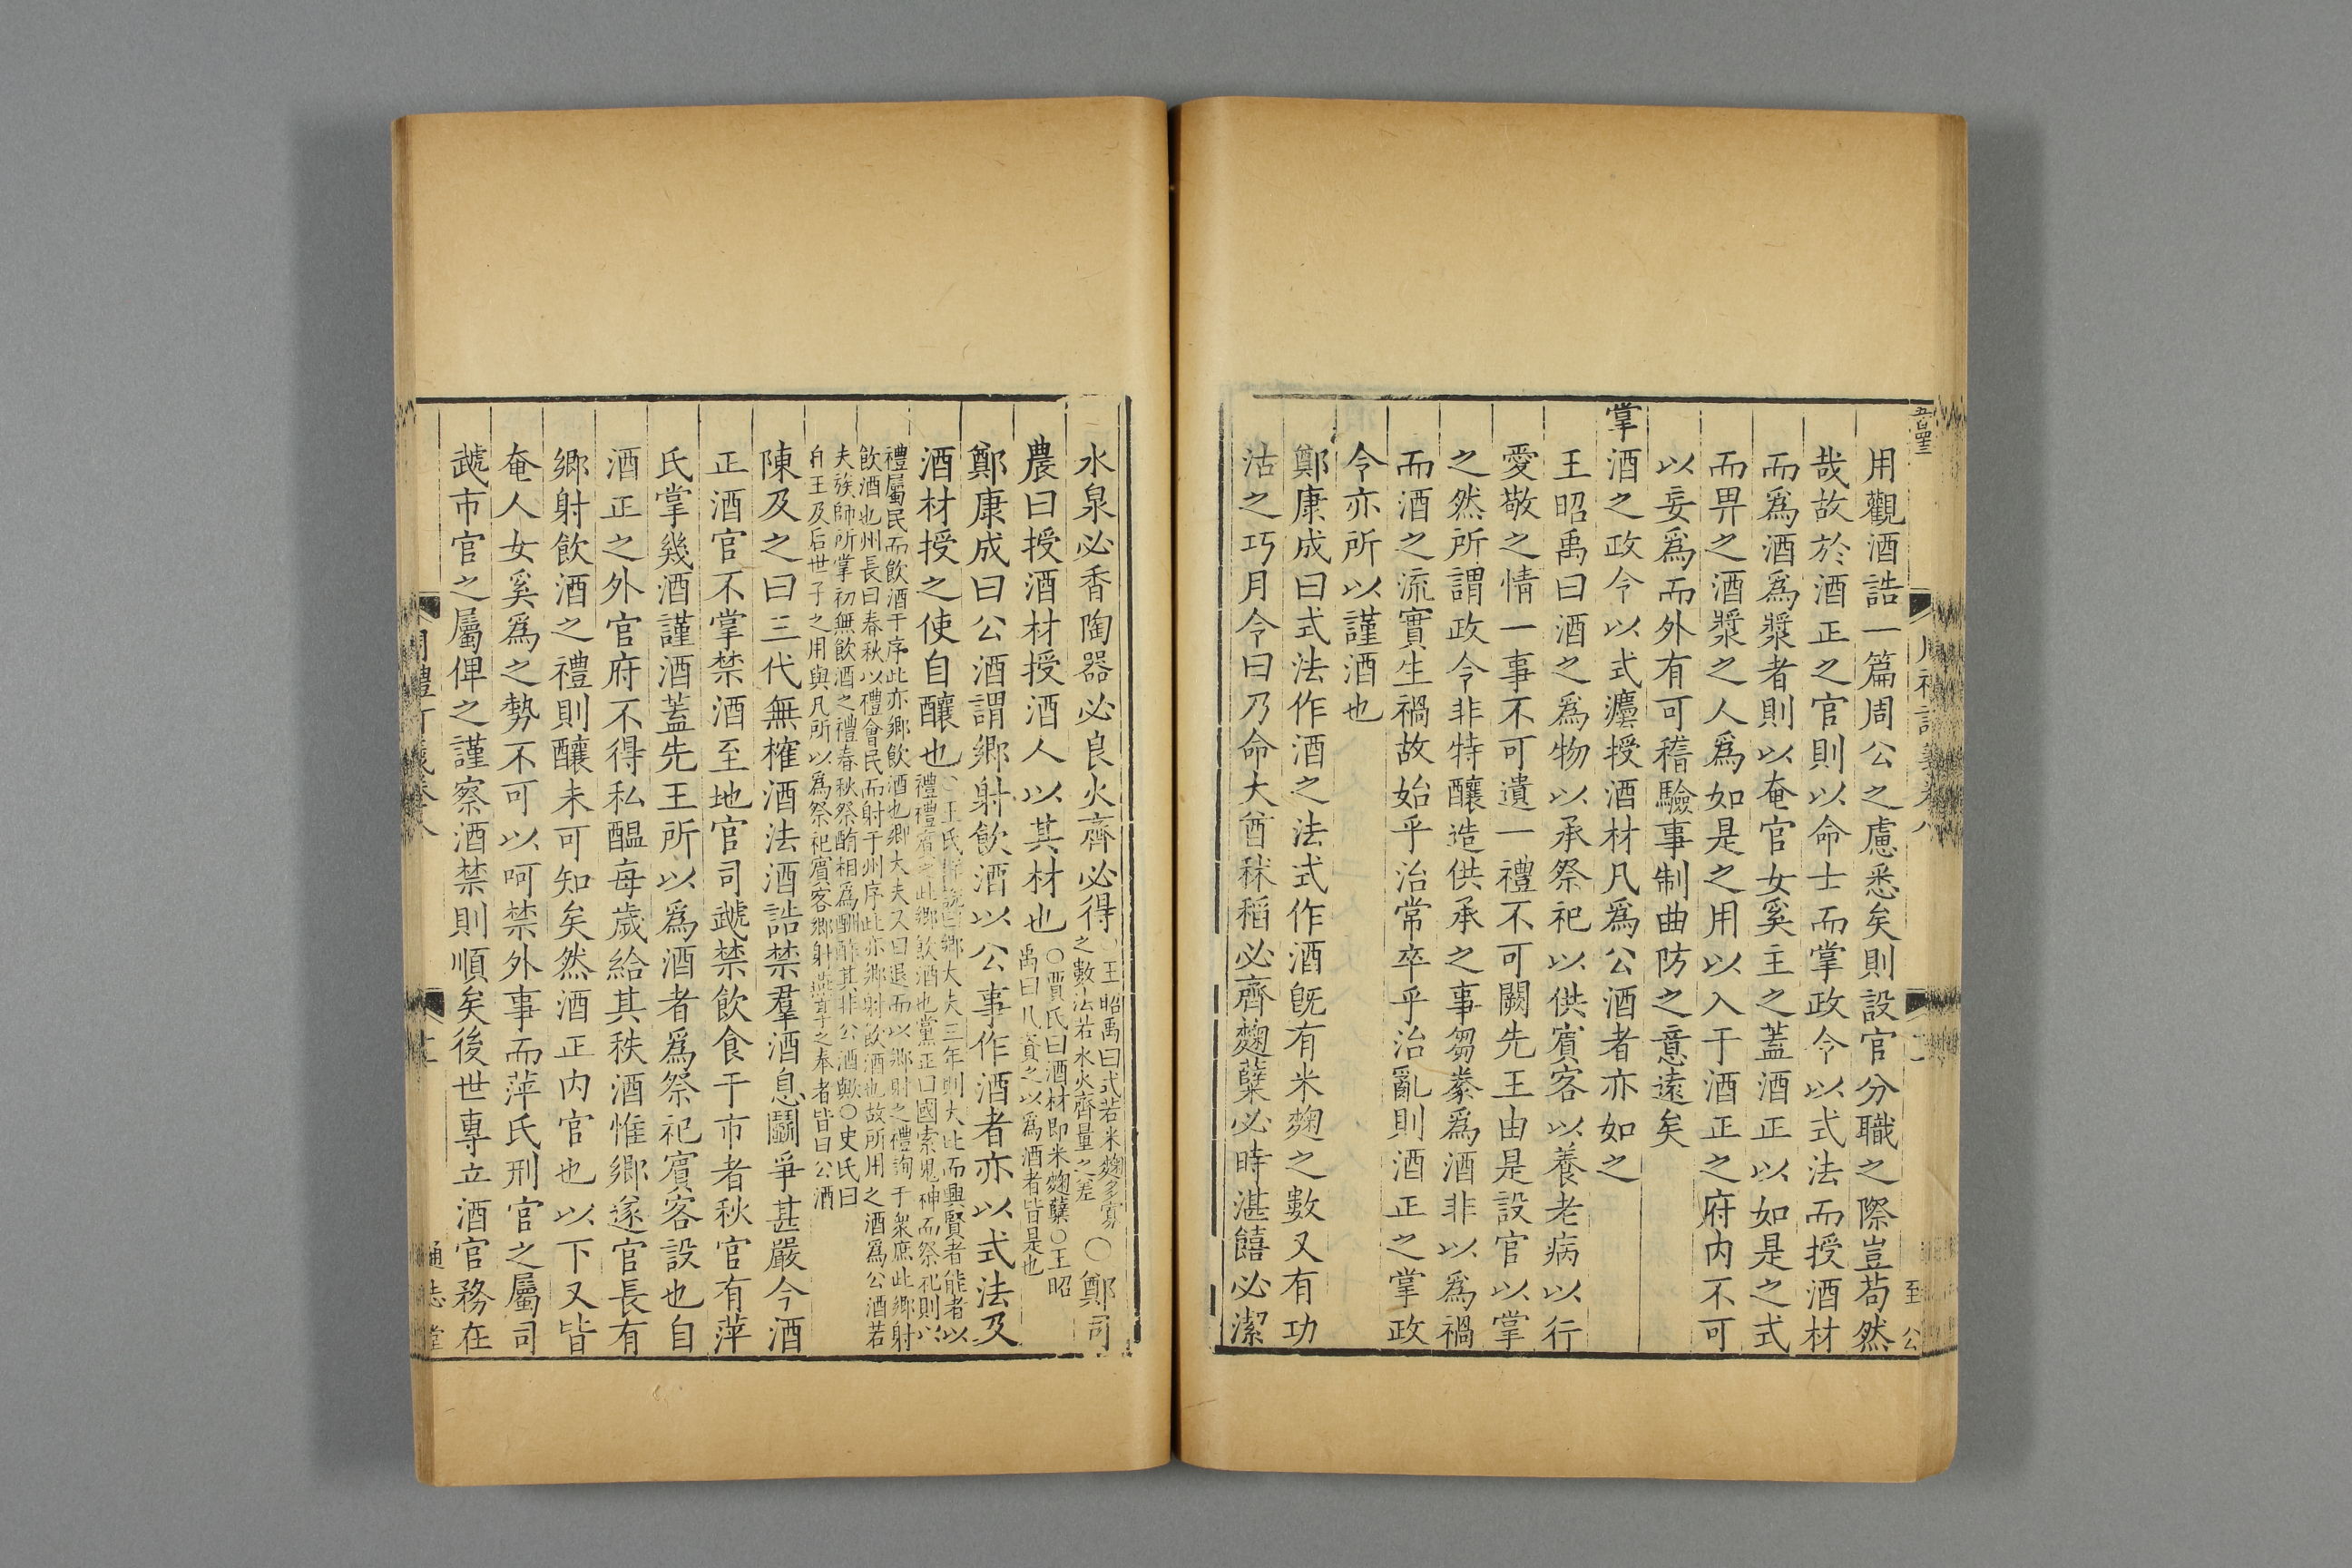 用觀酒誥一篇周公之慮悉矣則設官分職之際豈苟然
哉故於酒正之官則以命士而掌政令以式法而授酒材
而爲酒爲漿者則以奄官女奚主之蓋酒正以如是之式
而畀之酒漿之人爲如是之用以入于酒正之府内不可
以妄爲而外有可稽驗事制曲防之意遠矣
掌酒之政令以式灋授酒材凡爲公酒者亦如之
王昭禹曰酒之爲物以承祭祀以供賓客以養老病以行
愛敬之情一事不可遺一禮不可闕先王由是設官以掌
之然所謂政令非特釀造供承之事芻豢爲酒非以爲禍
而酒之流實生禍故始乎治常卒乎治亂則酒正之掌政
令亦所以謹酒也
鄭康成曰式法作酒之法式作酒旣有米麴之數又有功
沽之巧月令曰乃命大酋秫稻必齊麴糵必時湛饎必潔
水泉必香陶器必良火齊必得○王昭禹曰式若米麴多寡之數法若水火齊量之差○鄭司
農曰授酒材授酒人以其材也○賈氏曰酒材即米麴糵○王昭禹曰凡資之以爲酒者皆是也
鄭康成曰公酒謂鄉射飲酒以公事作酒者亦以式法及
酒材授之使自釀也○王氏詳說曰鄉大夫三年則大比而興賢者能者以禮禮賓之此鄉飲酒也黨正曰國索鬼神而祭祀則以
禮屬民而飲酒于序此亦鄉飲酒也鄉大夫又曰退而以鄉射之禮詢于衆庶此鄉射
飲酒也州長曰春秋以禮會民而射于州序此亦鄉射飲酒也故所用之酒爲公酒若
夫族師所掌初無飲酒之禮春秋祭酺相爲酬酢其非公酒歟○史氏曰
自王及后世子之用與凡所以爲祭祀賓客鄉射燕享之奉者皆曰公酒
陳及之曰三代無榷酒法酒誥禁羣酒息鬭爭甚嚴今酒
正酒官不掌禁酒至地官司虣禁飲食于市者秋官有萍
氏掌幾酒謹酒蓋先王所以爲酒者爲祭祀賓客設也自
酒正之外官府不得私醞每歲給其秩酒惟鄉遂官長有
鄉射飲酒之禮則釀未可知矣然酒正内官也以下又皆
奄人女奚爲之勢不可以呵禁外事而萍氏刑官之屬司
虣市官之屬俾之謹察酒禁則順矣後世專立酒官務在
通志堂